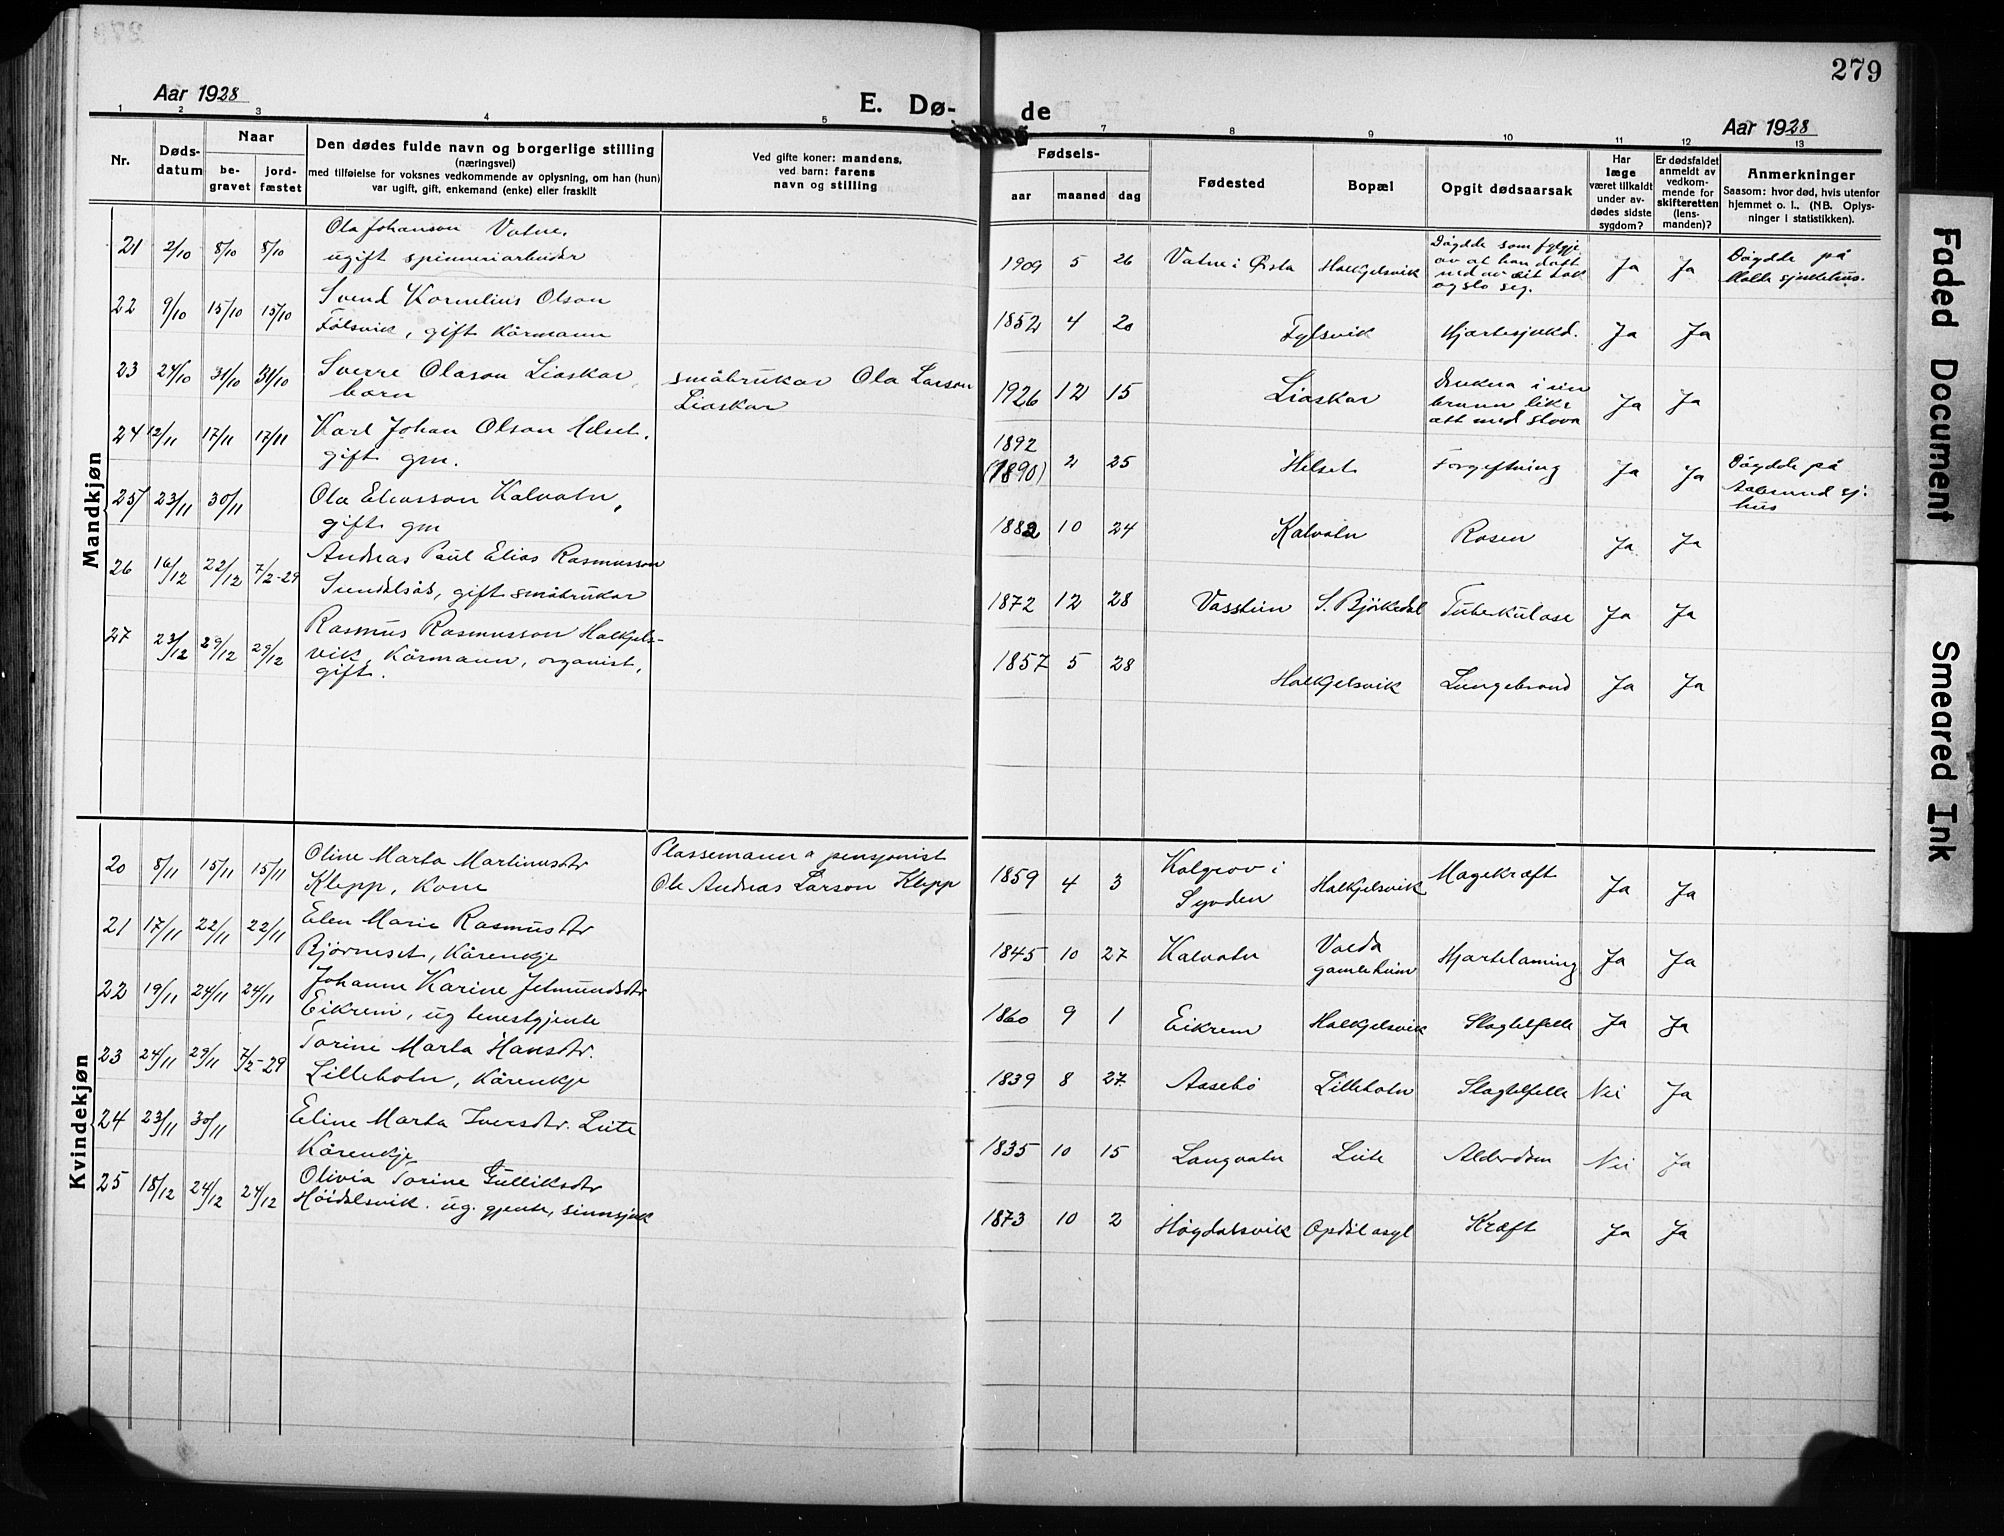 279
Aar 1928
E. Dø-
de
Aar 1928
1 2 3 4 5 7 8 9 10 11 12 13
Nr.
Døds-
datum
Naar
be-
gravet
jord-
fæstet
Den dødes fulde navn og borgerlige stilling
(næringsvei)
med tilføielse for voksnes vedkommende av oplysning, om han (hun)
var ugift, gift, enkemand (enke) eller fraskilt
Ved gifte koner: mandens,
ved barn: farens
navn og stilling
Fødsels-
aar maaned dag
Fødested
Bopæl
Opgit dødsaarsak
Har
læge
været tilkaldt
under av-
dødes sidste
sygdom?
Er dødsfaldet
anmeldt av
vedkom-
mende for
skifteretten
(lens-
manden)?
Anmerkninger
Saasom: hvor død, hvis utenfor
hjemmet o. l., (NB. Oplys-
ninger i statistikken).
Mandkjøn
21 2/10 8/10 8/10 Ola Johanson Vatne,
ugift spinneriarbeider
1909 5 26 Vatne i Ørsta Halkjelsvik
Døydde som fylgje
av at han datt
ned av eit tak
og slo seg.
Ja Ja
Døydde på
Molde sjukehus.
22 9/10 15/10 15/10 Svend Kornelius Olson
Fölsvik, gift kårmann
1852 4 20 Fylsvik Hjartesjukd. Ja Ja
23 24/10 31/10 31/10 Sverre Olason Liaskar,
barn
småbrukar Ola Larson
Liaskar
1926 12 15 Liaskar
Drukna i ein
brunn like
att med stova
Ja Ja
24 12/11 17/11 17/11 Karl Johan Olson Helset,
gift gm.
1892
(1890) 2 25 Helset Forgiftning Ja Ja
Døydde på
Aalesund sj.
hus
25 23/11 30/11 Ola Eliasson Kalvatn,
gift gm
1882 10 24 Kalvatn Rosen Ja Ja
26 16/12 22/12 7/2-29 Andreas Paul Elias Rasmusson
Sundalsås, gift småbrukar
1872 12 28 Vasstein S. Bjørkedal Tuberkulose Ja Ja
27 23/12 29/12 29/12 Rasmus Rasmusson Halkjels-
vik, Kårmann, organist,
gift.
1857 5 28 Halkjelsvik Lungebrand Ja Ja
Kvindekjøn
20 8/11 15/11 15/11 Oline Marta Martinusdtr
Klepp, kone
Plassemann o pensjonist
Ole Andreas Larson Klepp
1859 4 3 Kalgrov i
Syvden
Halkjelsvik Magekræft Ja Ja
21 17/11 22/11 22/11 Elen Marie Rasmusdtr
Bjørneset, Kårenkje
1845 10 27 Kalvatn Volda
gamleheim
Hjartelaming Ja Ja
22 19/11 24/11 24/11 Johanne Karine Jetmundsdtr
Eikrem, ug tenestgjente
1860 9 1 Eikrem Halkjelsvik Slagtelfelle Ja Ja
23 24/11 29/11 7/2-29 Torine Marta Hansdtr.
Lillehotn, Kårenkje
1839 8 27 Aasebø Lillehotn Slagtelfelle Nei Ja
24 23/11 30/11 Eline Marta Iversdtr. Leite
Kårenkje
1835 10 15 Langvatn Leite Alderdom Nei Ja
25 18/12 24/12 24/12 Olivia Torine Gulliksdtr
Höidalsvik. ug. gjente, sinnsjuk
1873 10 2 Høydalsvik Opdøl asyl Kræft Ja Ja
Faded Document
Smeared Ink